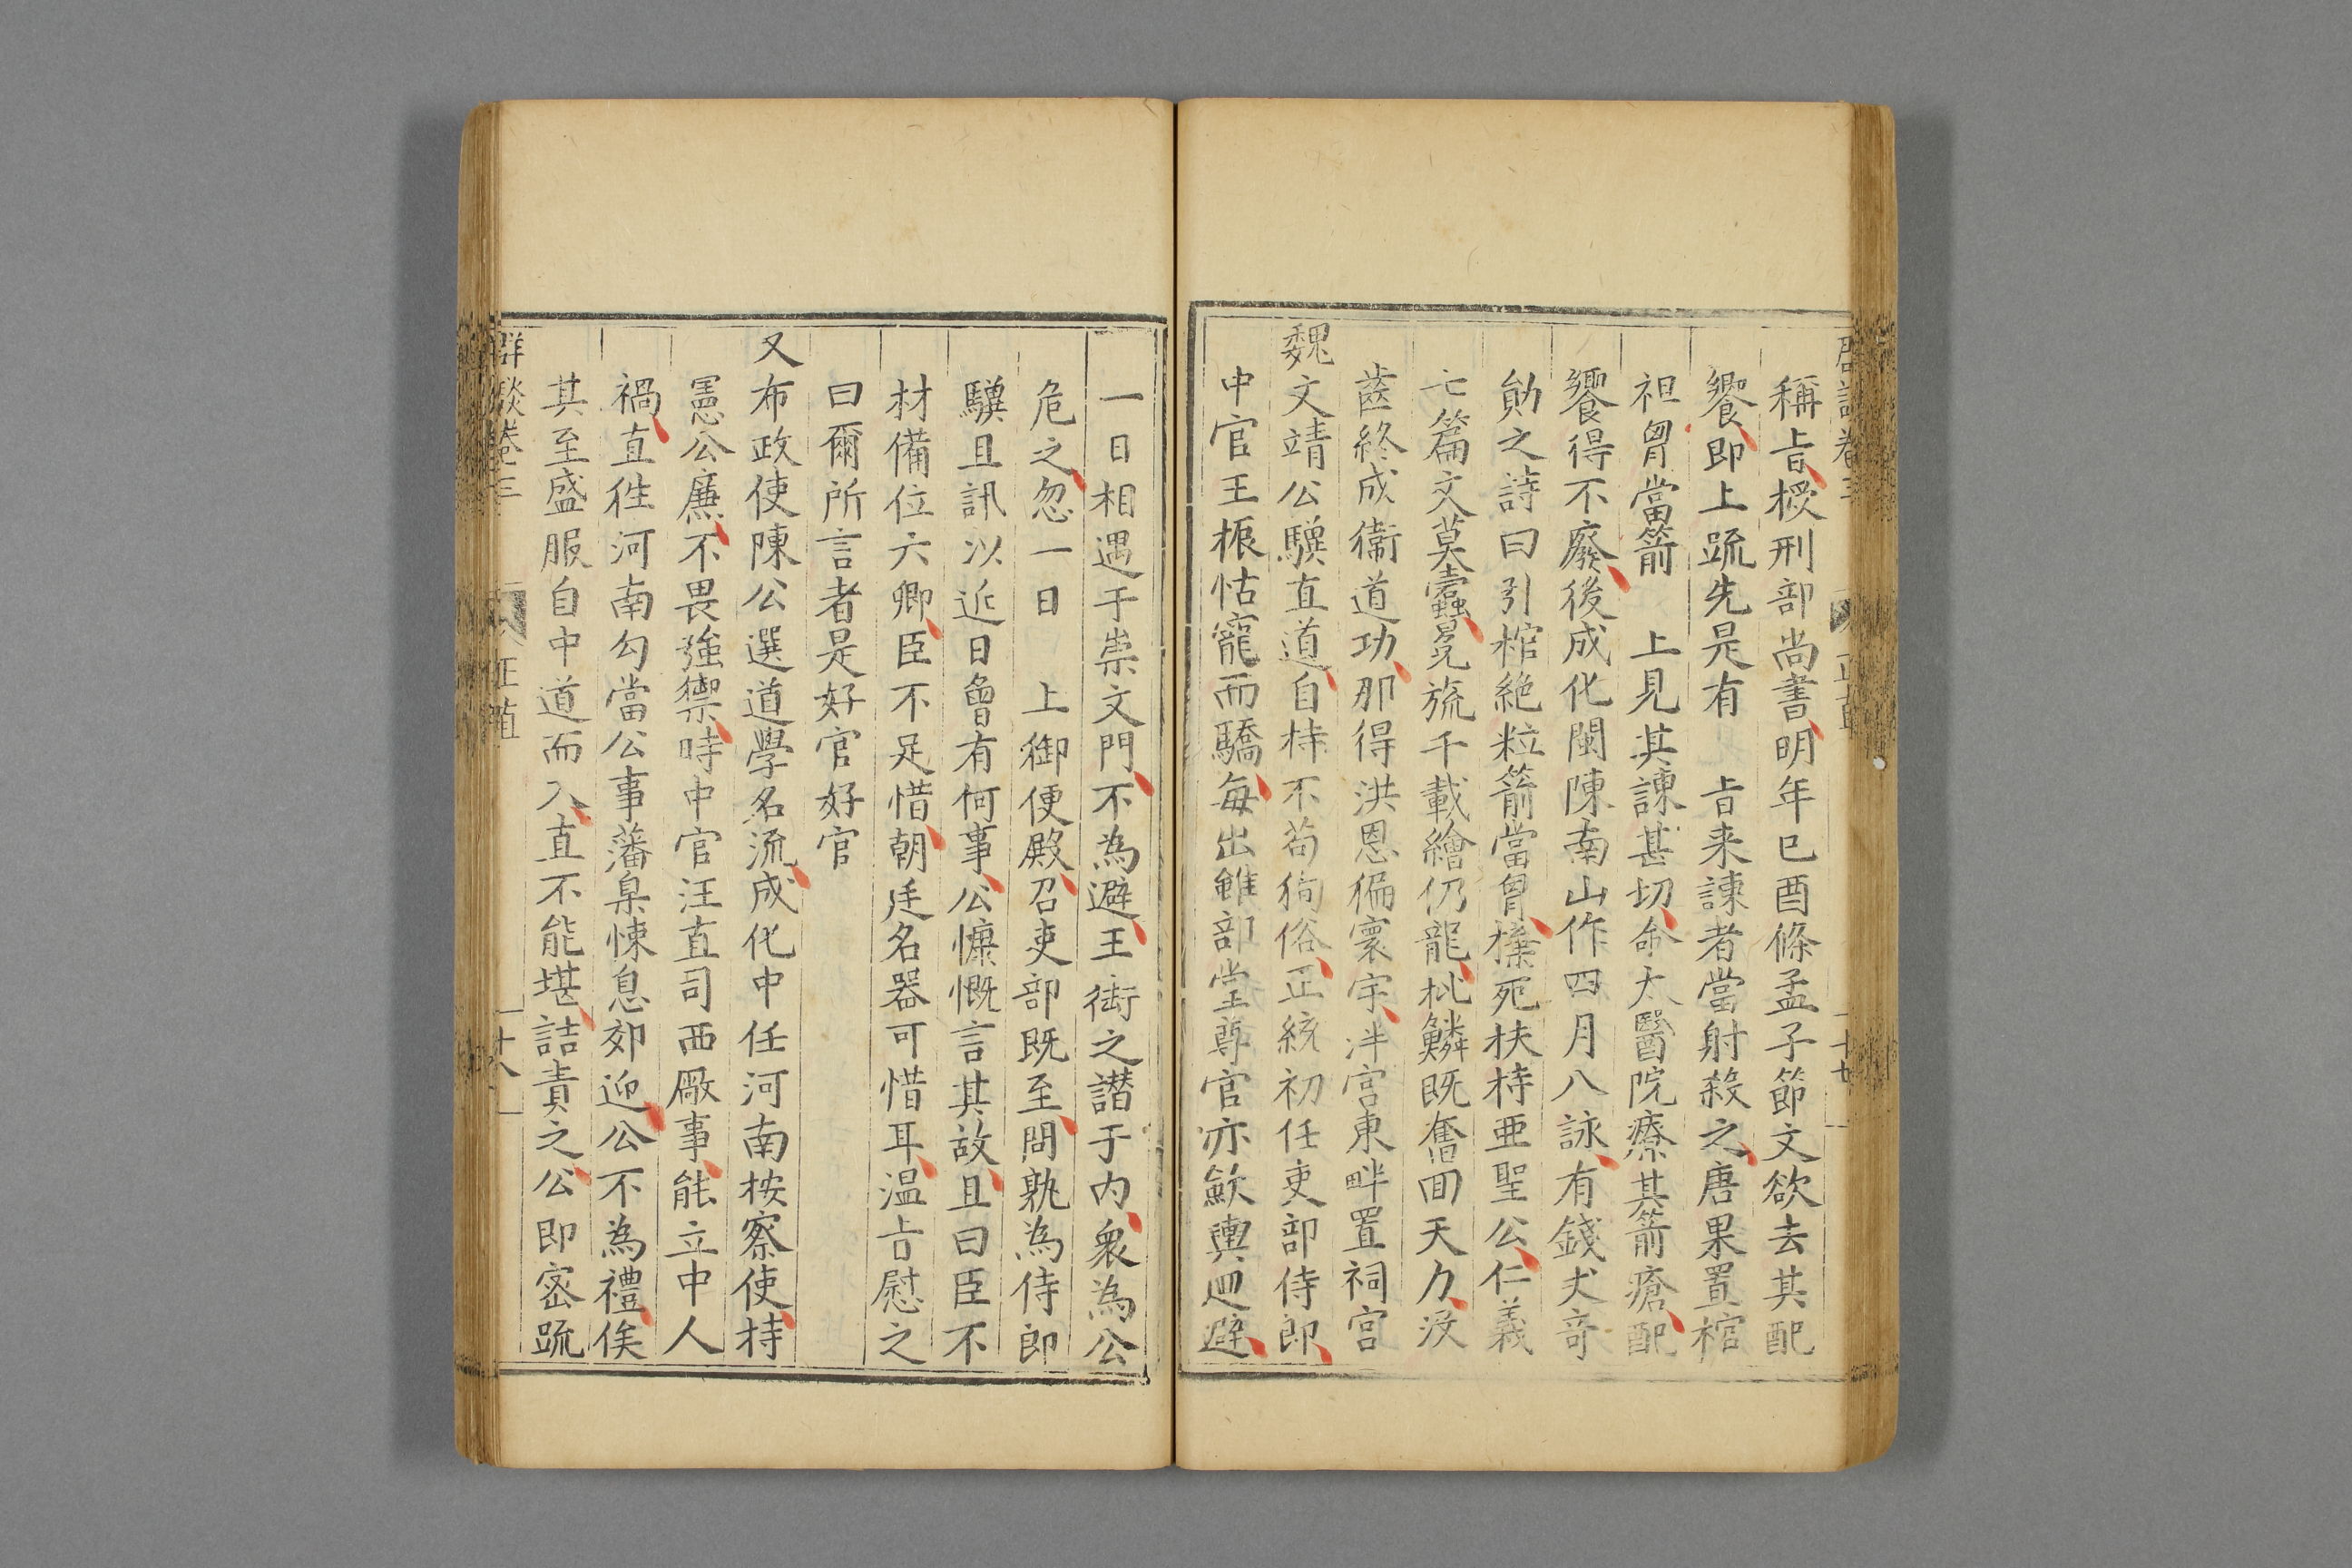 稱旨擬刑部尚書明年巳酉條孟子節文欲去其配
饗即上疏先是有　旨来諫者當射殺之唐果置棺
袒胷當箭　上見其諫甚切命太醫院療其箭瘡配
饗得不廢後成化閩陳南山作四月八詠有錢尤竒
勛之詩曰引棺絶粒箭當胷㩁死扶持亜聖公仁義
七篇文莫蠧冕旒千載繪仍龍批鱗既奮囬天力没
齒終成衞道功那得洪恩徧寰宇泮宫東畔置祠宫
魏文靖公驥直道自持不茍狥俗正統初任吏部侍郎
中官王振怙寵而驕每出雖部堂尊官亦歛輿廻避
一日相遇于崇文門不為避王銜之譖于内衆為公
危之忽一日　上御便殿召吏部既至問孰為侍郎
驥且訊以近日會有何事公慷慨言其故且曰臣不
材備位六卿臣不足惜朝廷名器可惜耳温旨慰之
曰爾所言者是好官好官
又布政使陳公選道學名流成化中任河南按察使持
憲公廉不畏強禦時中官汪直司西廠事能立中人
禍直徃河南勾當公事藩臬悚息郊迎公不為禮俟
其至盛服自中道而入直不能堪詰責之公即宻疏
群談卷三　正直　十八